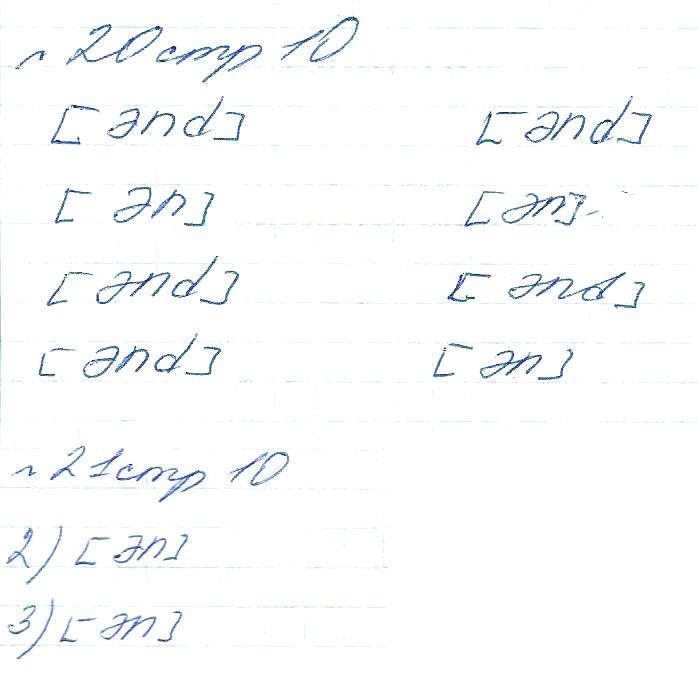 n 20 стр 10
[ənd] [ənd]
[ən] [ən]
[ənd] [ənd]
[ənd] [ən]
n 21 стр 10
2) [ən]
3) [ən]